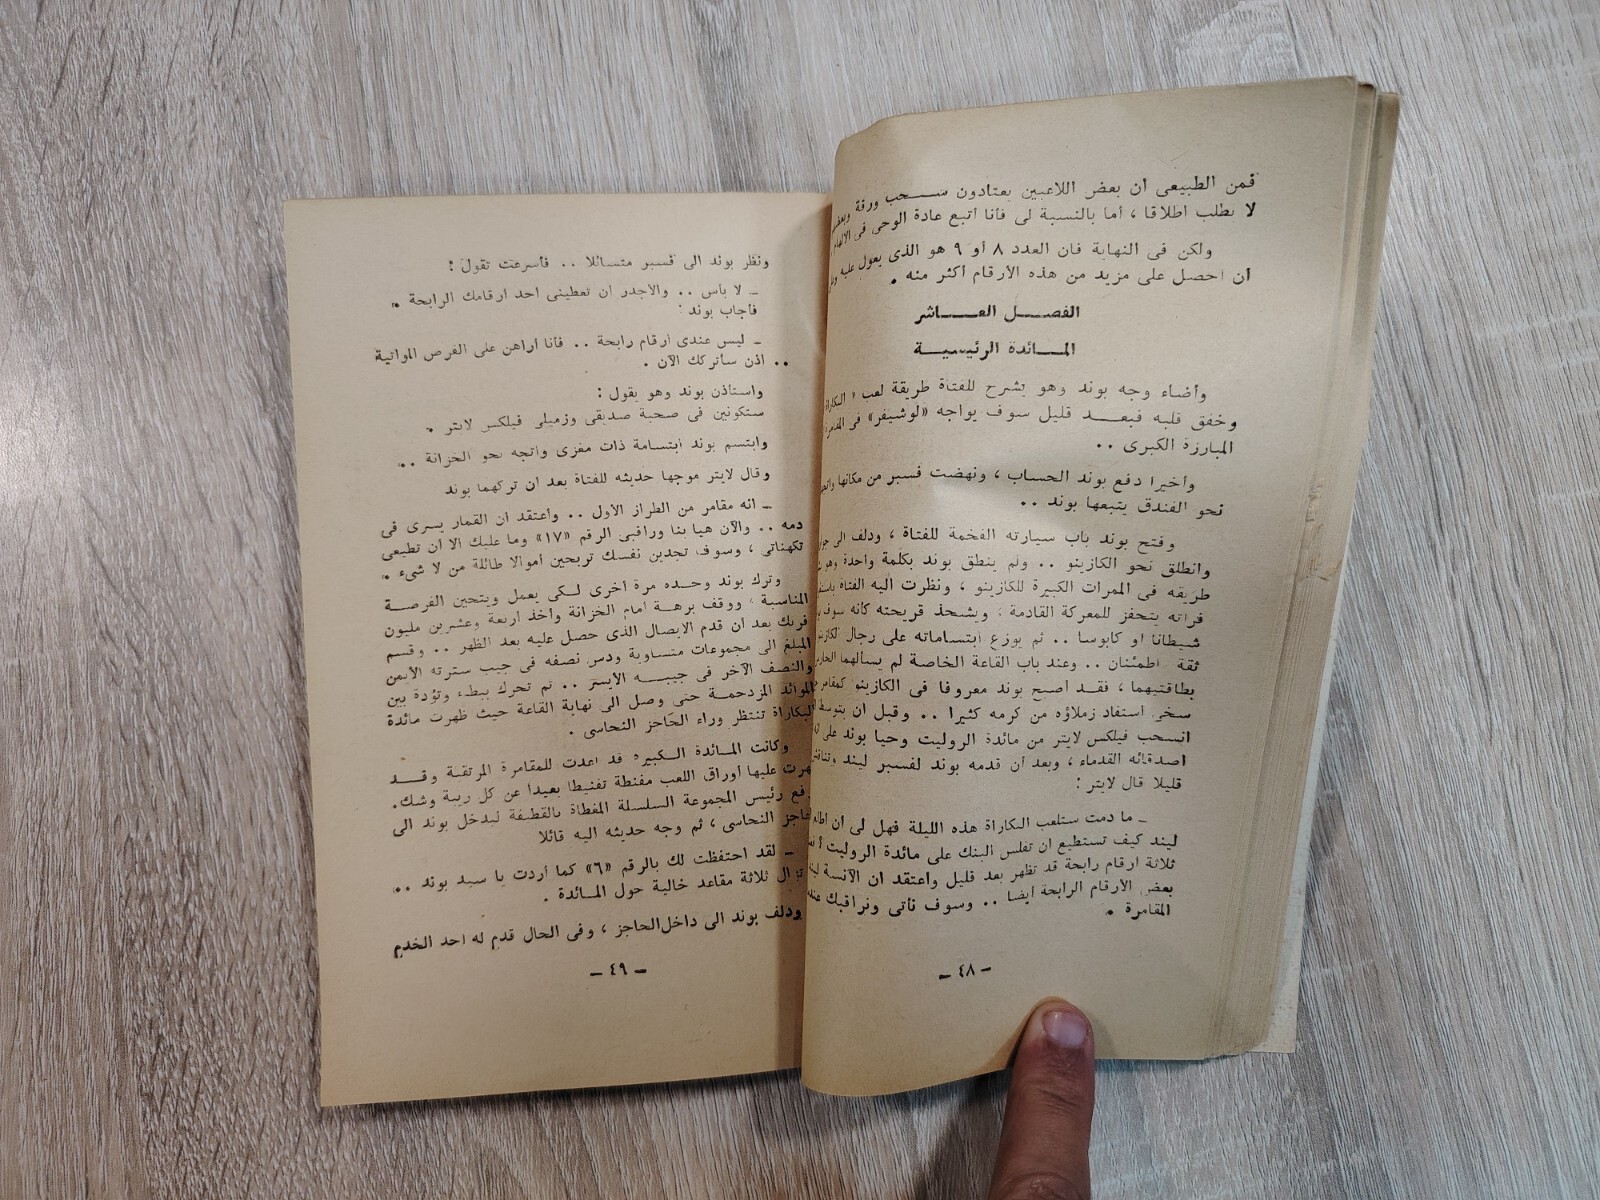 فمن الطبيعى ان بعض اللاعبين يعتادون سـحب ورقة
لا يطلب اطلاقا ، أما بالنسبة لى فأنا اتبع عادة الوحى فى
ولكن فى النهاية فان العدد ٨ أو ٩ هو الذى يعول عليه
ان احصل على مزيد من هذه الأرقام أكثر منه .
الفصـل العـاشر
المـائدة الرئيسيـة
وأضاء وجه بوند وهو يشرح للفتاة طريقة لعب
وخفق قلبه فبعـد قليل سوف يواجه «لوشيفر» فى
المبارزة الكبرى ..
واخيرا دفع بوند الحساب ، ونهضت فسبر من مكانها
نحو الفندق يتبعها بوند ..
وفتح بوند باب سيارته الفخمة للفتاة ، ودلف الى
وانطلق نحو الكازينو .. ولم ينطق بوند بكلمة واحدة
طريقه فى الممرات الكبيرة للكازينو ، ونظرت اليه الفتاة
فرأته يتحفز للمعركة القادمة ، ويشحذ قريحته كأنه سوف
شيطانا او كابوسا .. ثم يوزع ابتساماته على رجال
ثقة اطمئنان .. وعند باب القاعة الخاصة لم يسألهما
بطاقتيهما ، فقد أصبح بوند معروفا فى الكازينو
سخى استفاد زملاؤه من كرمه كثيرا .. وقبل ان يتوسط
انسحب فيلكس لايتر من مائدة الروليت وحيا بوند على
اصدقائه القدماء ، وبعد أن قدمه بوند لفسبر ليند
قليلا قال لايتر :
ـ ما دمت ستلعب البكاراة هذه الليلة فهل لى ان
ليند كيف تستطيع ان تفلس البنك على مائدة الروليت ؟
ثلاثة ارقام رابحة قد تظهر بعد قليل واعتقد ان الآنسة
بعض الأرقام الرابحة ايضا .. وسوف نأتى ونراقبك
المقامرة .
ـ ٤٨ ـ
ونظر بوند الى فسبر متسائلا .. فأسرعت تقول :
ـ لا بأس .. والأجدر ان تعطينى احد ارقامك الرابحة .
فأجاب بوند :
ـ ليس عندى ارقام رابحة .. فأنا اراهن على الفرص المواتية
.. اذن سأتركك الآن .
واستأذن بوند وهو يقول :
ستكونين فى صحبة صديقى وزميلى فيلكس لايتر .
وابتسم بوند ابتسامة ذات مغزى واتجه نحو الخزانة ..
وقال لايتر موجها حديثه للفتاة بعد ان تركهما بوند
ـ انه مقامر من الطراز الأول .. واعتقد ان القمار يسرى فى
دمه .. والآن هيا بنا وراقبى الرقم «١٧» وما عليك الا أن تطيعى
تكهناتى ، وسوف تجدين نفسك تربحين أموالا طائلة من لا شىء .
وترك بوند وحـده مرة أخرى لـكى يعمل ويتحين الفرصـة
المناسبة ، ووقف برهة امام الخزانة وأخذ اربعة وعشرين مليون
فرنك بعد ان قدم الايصال الذى حصل عليه بعد الظهر .. وقسم
المبلغ الى مجموعات متساوية ودس نصفه فى جيب سترته الأيمن
والنصف الآخر فى جيبـه الأيسر .. ثم تحرك ببطء وتؤدة بين
الموائد المزدحمة حتى وصل الى نهاية القاعة حيث ظهرت مائدة
البكاراة تنتظر وراء الحاجز النحاسى .
وكانت المـائدة الـكبيرة قد اعدت للمقامرة المرتقبة وقـد
عليها أوراق اللعب مفنطة تفنيطا بعيدا عن كل ريبة وشك.
رئيس المجموعة السلسلة المغطاة بالقطيفة ليدخل بوند الى
النحاسى ، ثم وجه حديثه اليه قائلا
ـ لقد احتفظت لك بالرقم «٦» كما أردت يا سيد بوند ..
ثلاثة مقاعد خالية حول المـائدة .
ودلف بوند الى داخل الحاجز ، وفى الحال قدم له احد الخدم
ـ ٤٩ ـ